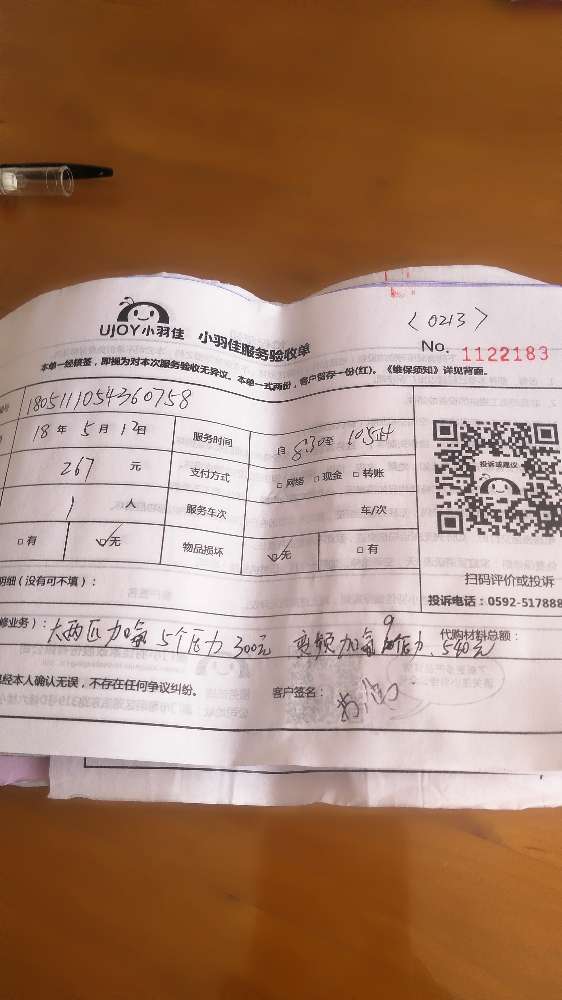 UJOY小羽佳 小羽佳服务验收单
〈0213〉
No. 1122183
本单一经核签，即视为对本次服务验收无异议。本单一式两份，客户留存一份(红)。《维保须知》详见背面。
号 1805111054360758
18 年 5 月 12日 服务时间 8:30至
267 元 支付方式 □网络 □现金 □转账
1 人 服务车次 车/次
□有 ☑无 物品损坏 ☑无 □有
投诉或建议
扫码评价或投诉
投诉电话：0592-517888
明细（没有可不填）：
修业务）： 大两匹加氟 5个压力 300元 变频加氟 9个压力 540元 代购材料总额：
经本人确认无误，不存在任何争议纠纷。 客户签名：